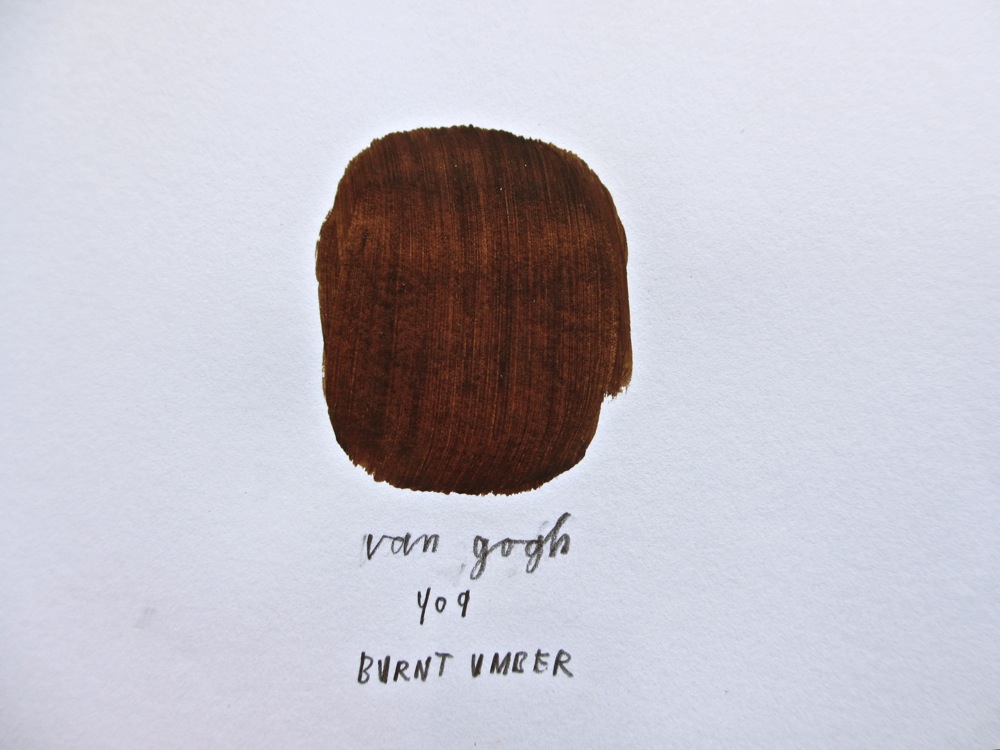 van gogh
409
BURNT UMBER